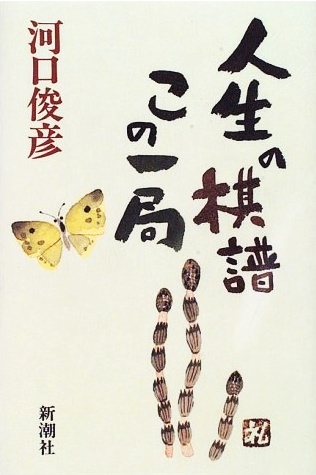 人生の棋譜
この一局
河口俊彦
新潮社